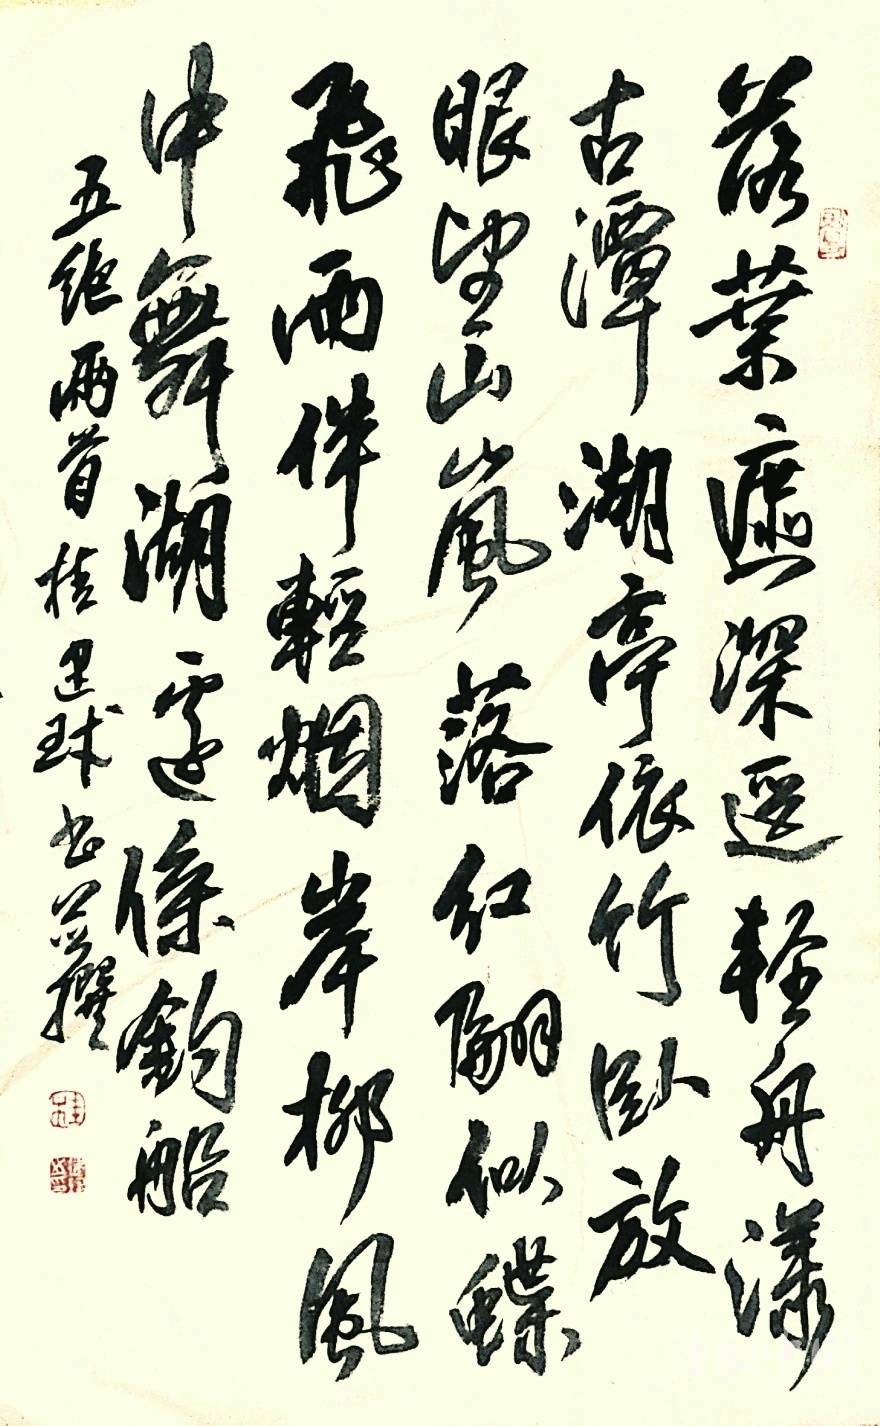 落葉遮深逕輕舟漾
古潭湖亭依竹臥放
眼望山嵐落紅翩似蝶
飛雨伴輕烟岸柳風
中舞湖邊係釣船
五絕兩首桂建球書並撰